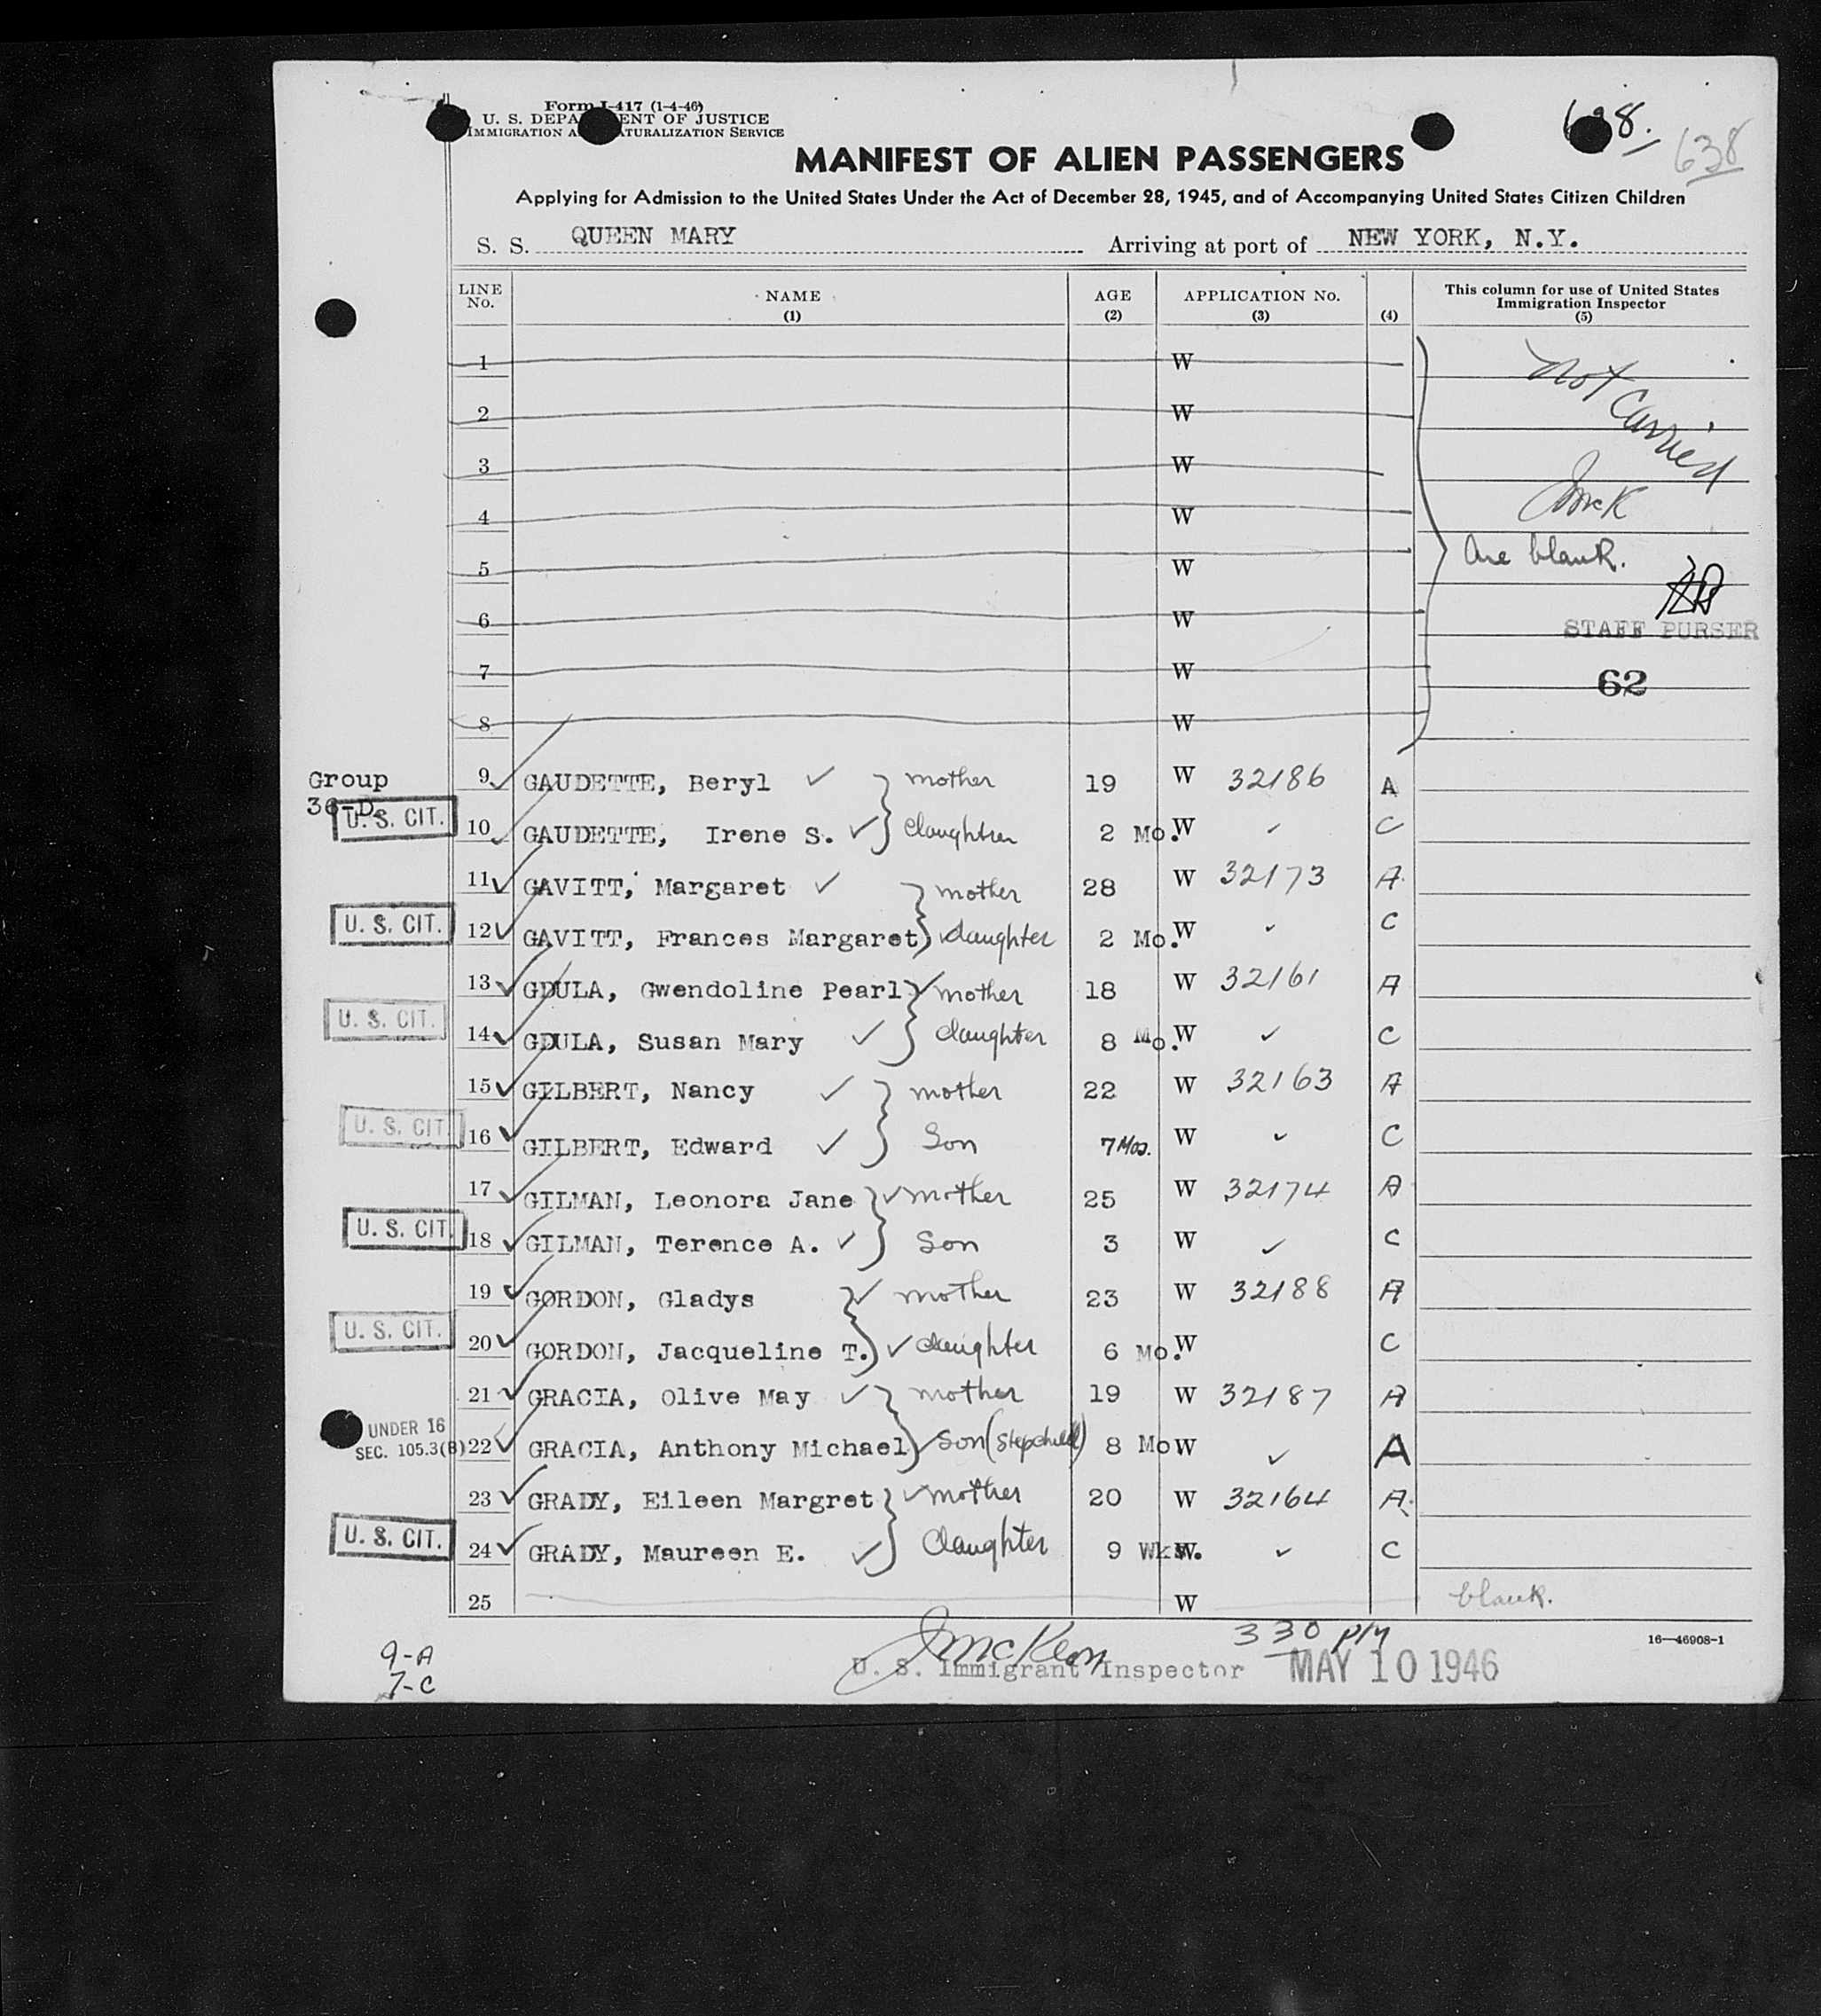 Form I-417 (1-4-46)
U. S. DEPA ENT OF JUSTICE
IMMIGRATION A ATURALIZATION SERVICE
638
MANIFEST OF ALIEN PASSENGERS
Applying for Admission to the United States Under the Act of December 28, 1945, and of Accompanying United States Citizen Children
S. S. QUEEN MARY Arriving at port of NEW YORK, N.Y.
LINE No. NAME (1) AGE (2) APPLICATION No. (3) (4) This column for use of United States Immigration Inspector (5)
1 W
not carried
2 W
3 W
JMcK
4 W
5 W are blank.
6 W
STAFF PURSER
7 W
62
8 W
Group 36-D
9 GAUDETTE, Beryl ✓ mother 19 W 32186 A
U. S. CIT. 10 GAUDETTE, Irene S. ✓ daughter 2 Mo. W ✓ C
11 GAVITT, Margaret ✓ mother 28 W 32173 A
U. S. CIT. 12 GAVITT, Frances Margaret ✓ daughter 2 Mo. W ✓ C
13 GDULA, Gwendoline Pearl ✓ mother 18 W 32161 A
U. S. CIT. 14 GDULA, Susan Mary ✓ daughter 8 Mo. W ✓ C
15 GILBERT, Nancy ✓ mother 22 W 32163 A
U. S. CIT. 16 GILBERT, Edward ✓ Son 7 Mos. W ✓ C
17 GILMAN, Leonora Jane ✓ mother 25 W 32174 A
U. S. CIT. 18 GILMAN, Terence A. ✓ Son 3 W ✓ C
19 GORDON, Gladys ✓ mother 23 W 32188 A
U. S. CIT. 20 GORDON, Jacqueline T. ✓ daughter 6 Mo. W C
21 GRACIA, Olive May ✓ mother 19 W 32187 A
UNDER 16 SEC. 105.3(B) 22 GRACIA, Anthony Michael ✓ Son (Stepchild) 8 Mo W ✓ A
23 GRADY, Eileen Margret ✓ mother 20 W 32164 A
U. S. CIT. 24 GRADY, Maureen E. ✓ daughter 9 Wks. W ✓ C
25 W blank.
JMcKeon 330 PM
16—46908-1
U. S. Immigrant Inspector MAY 10 1946
9-A
7-C